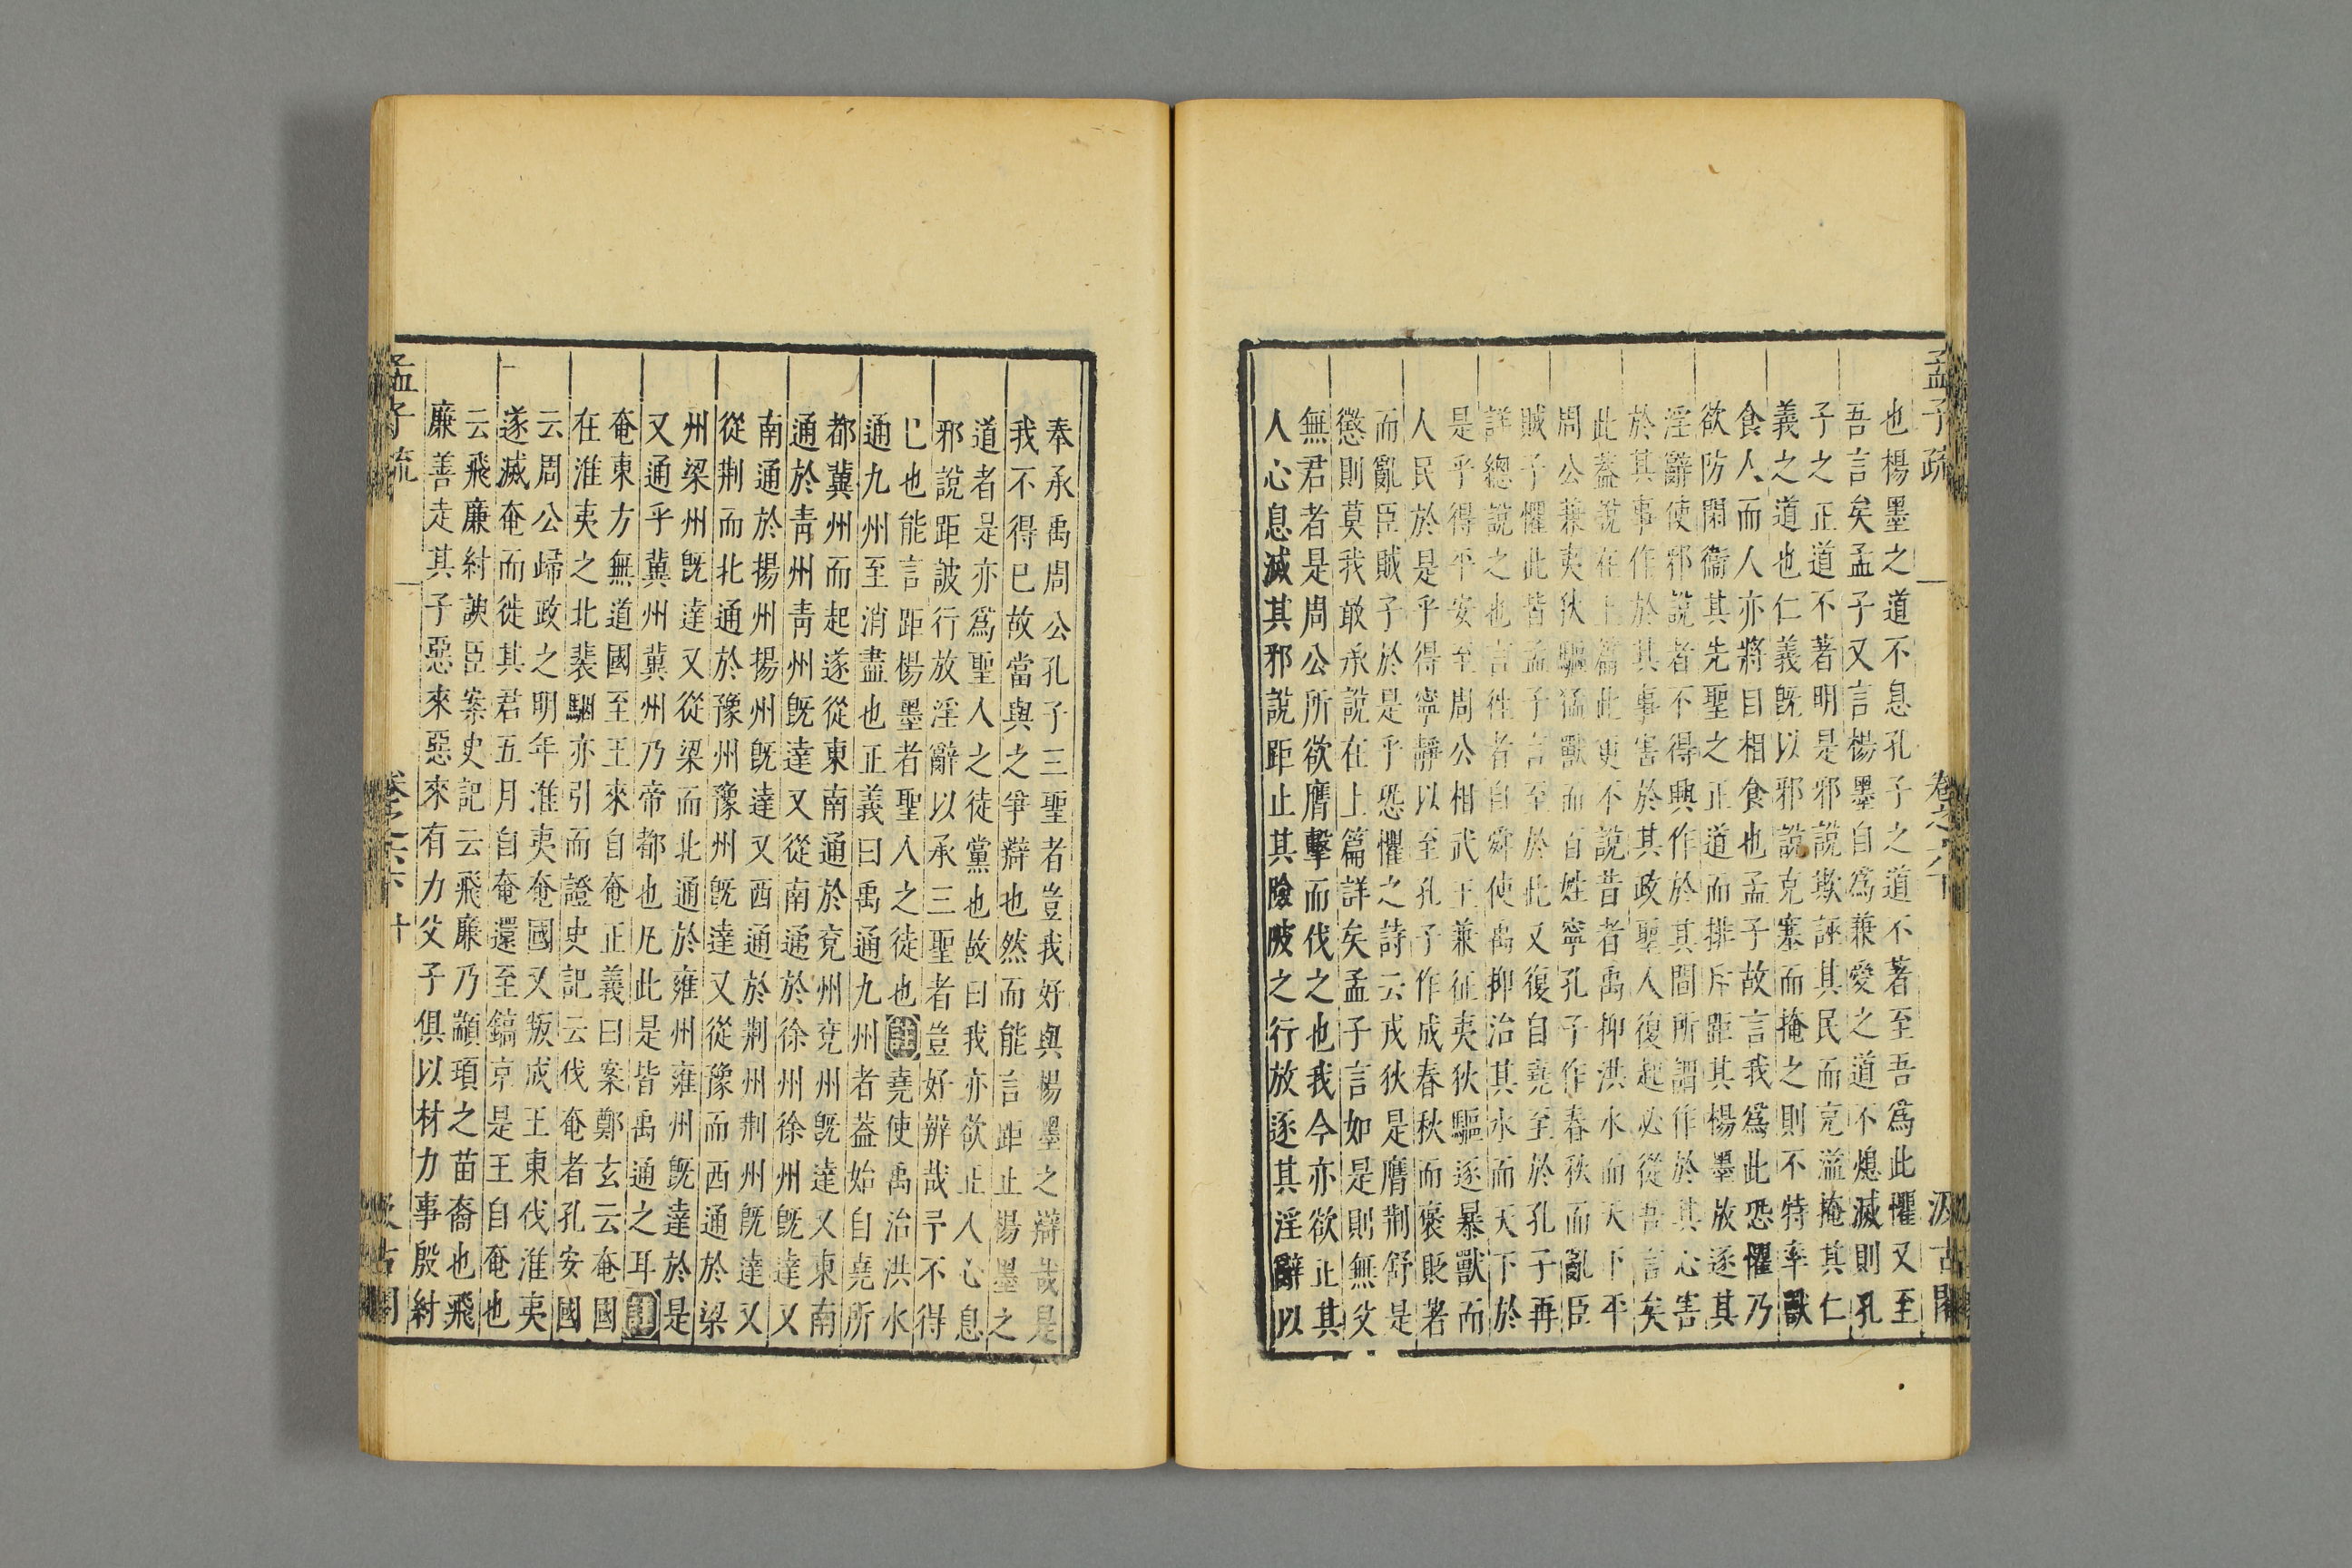 孟子疏 卷六下 汲古閣
也楊墨之道不息孔子之道不著至吾爲此懼又至
吾言矣孟子又言楊墨自爲兼愛之道不熄滅則孔
子之正道不著明是邪說欺誣其民而充滋掩其仁
義之道也仁義既以邪說充塞而掩之則不特率獸
食人而人亦將自相食也孟子故言我爲此恐懼乃
欲防閑衞其先聖之正道而排斥距其楊墨放逐其
淫辭使邪說者不得興作於其間所謂作於其心害
於其事作於其事害於其政聖人復起必從吾言矣
此葢說在上篇此更不說昔者禹抑洪水而天下平
周公兼夷狄驅猛獸而百姓寧孔子作春秋而亂臣
賊子懼此皆孟子言至於此又復自堯至於孔子再
詳總說之也言往者自舜使禹抑治其水而天下於
是乎得平安至周公相武王兼征夷狄驅逐暴獸而
人民於是乎得寧靜以至孔子作成春秋而褒貶著
而亂臣賊子於是乎恐懼之詩云戎狄是膺荆舒是
懲則莫我敢承說在上篇詳矣孟子言如是則無父
無君者是周公所欲膺擊而伐之也我今亦欲正其
人心息滅其邪說距止其險陂之行放逐其淫辭以
奉承禹周公孔子三聖者豈我好與楊墨之辯哉是
我不得已故當與之爭辯也然而能言距止楊墨之
道者是亦爲聖人之徒黨也故曰我亦欲正人心息
邪說距詖行放淫辭以承三聖者豈好辨哉予不得
已也能言距楊墨者聖人之徒也註堯使禹治洪水
通九州至消盡也正義曰禹通九州者葢始自堯所
都冀州而起遂從東南通於兗州兗州既達又東南
通於青州青州既達又從南通於徐州徐州既達又
南通於揚州揚州既達又西通於荆州荆州既達又
從荆而北通於豫州豫州既達又從豫而西通於梁
州梁州既達又從梁而北通於雍州雍州既達於是
又通乎冀州冀州乃帝都也凡此是皆禹通之耳註
奄東方無道國至王來自奄正義曰案鄭玄云奄國
在淮夷之北裴駰亦引而證史記云伐奄者孔安國
云周公歸政之明年淮夷奄國又叛成王東伐淮夷
遂滅奄而徙其君五月自奄還至鎬京是王自奄也
云飛廉紂諛臣案史記云飛廉乃顓頊之苗裔也飛
廉善走其子惡來惡來有力父子俱以材力事殷紂
孟子疏 卷六下 十 汲古閣